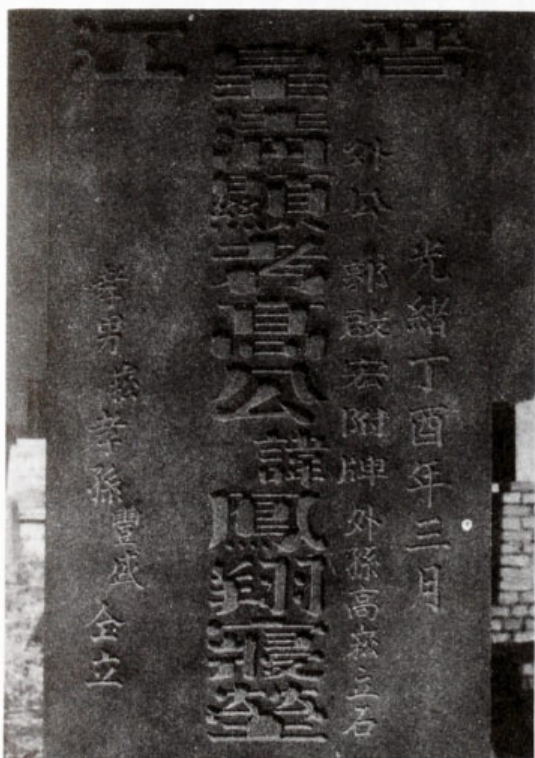 晉江
光緒丁酉年三月
外公郭宏附牌外孫高崧立石
皇清顯考高公諱鳳翔寢塋
孝男崧孝孫豐盛仝立